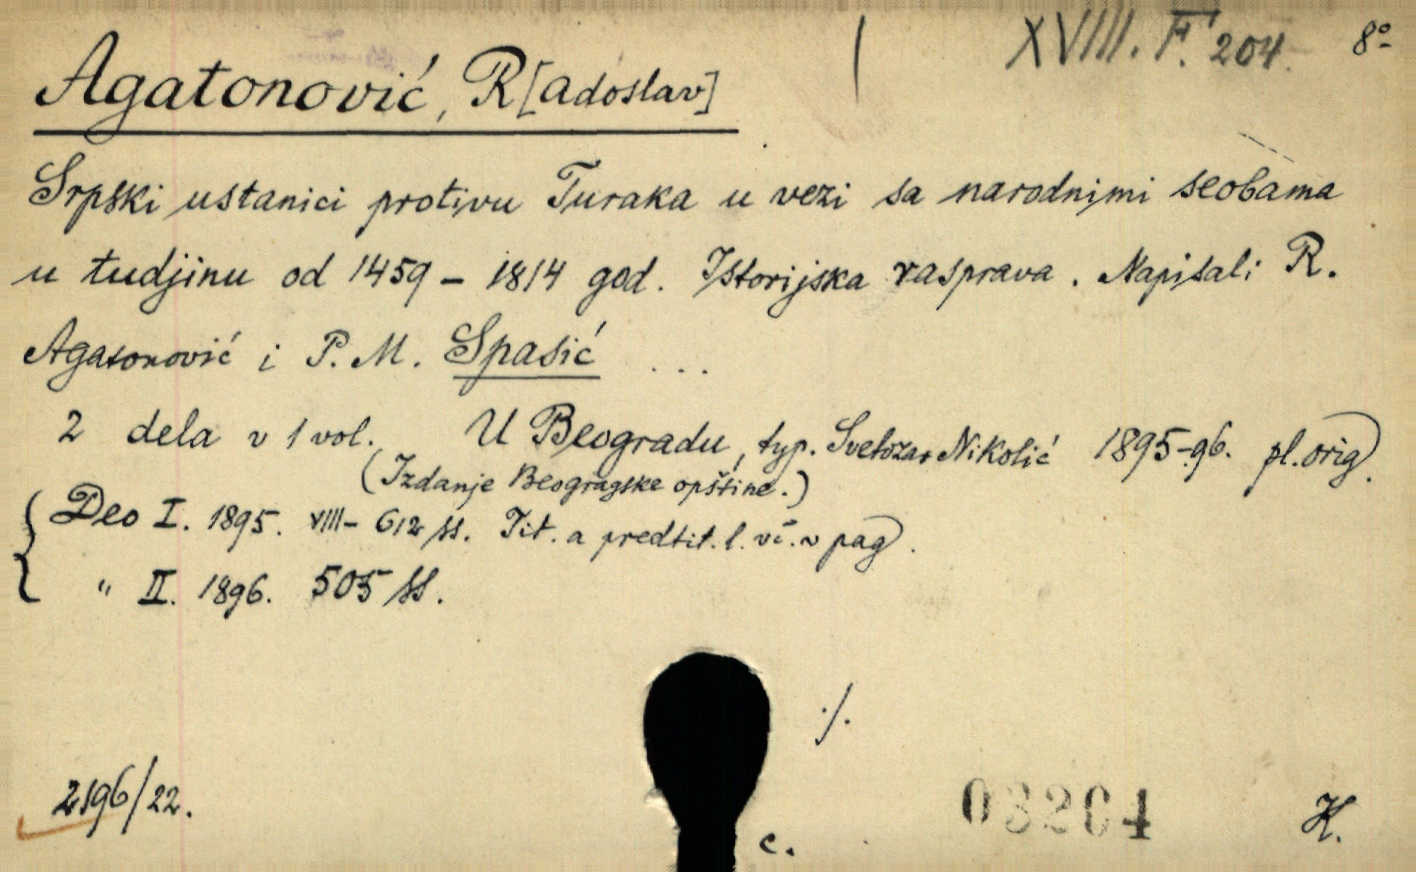 XVIII. F. 204. 8°
Agatonović, R[adoslav]
Srpski ustanici protivu Turaka u vezi sa narodnimi seobama
u tudjinu od 1459 - 1814 god. Istorijska rasprava. Napisali R.
Agatonović i P. M. Spasić ...
2 dela v 1 vol. U Beogradu, typ. Svetozar Nikolić 1895-96. pl. orig.
(Izdanje Beogragske opštine.)
Deo I. 1895. VIII - 612 ss. Tit. a predtit. l. vč. v pag.
" II. 1896. 505 ss.
./.
2196/22.
03204
K.
c.